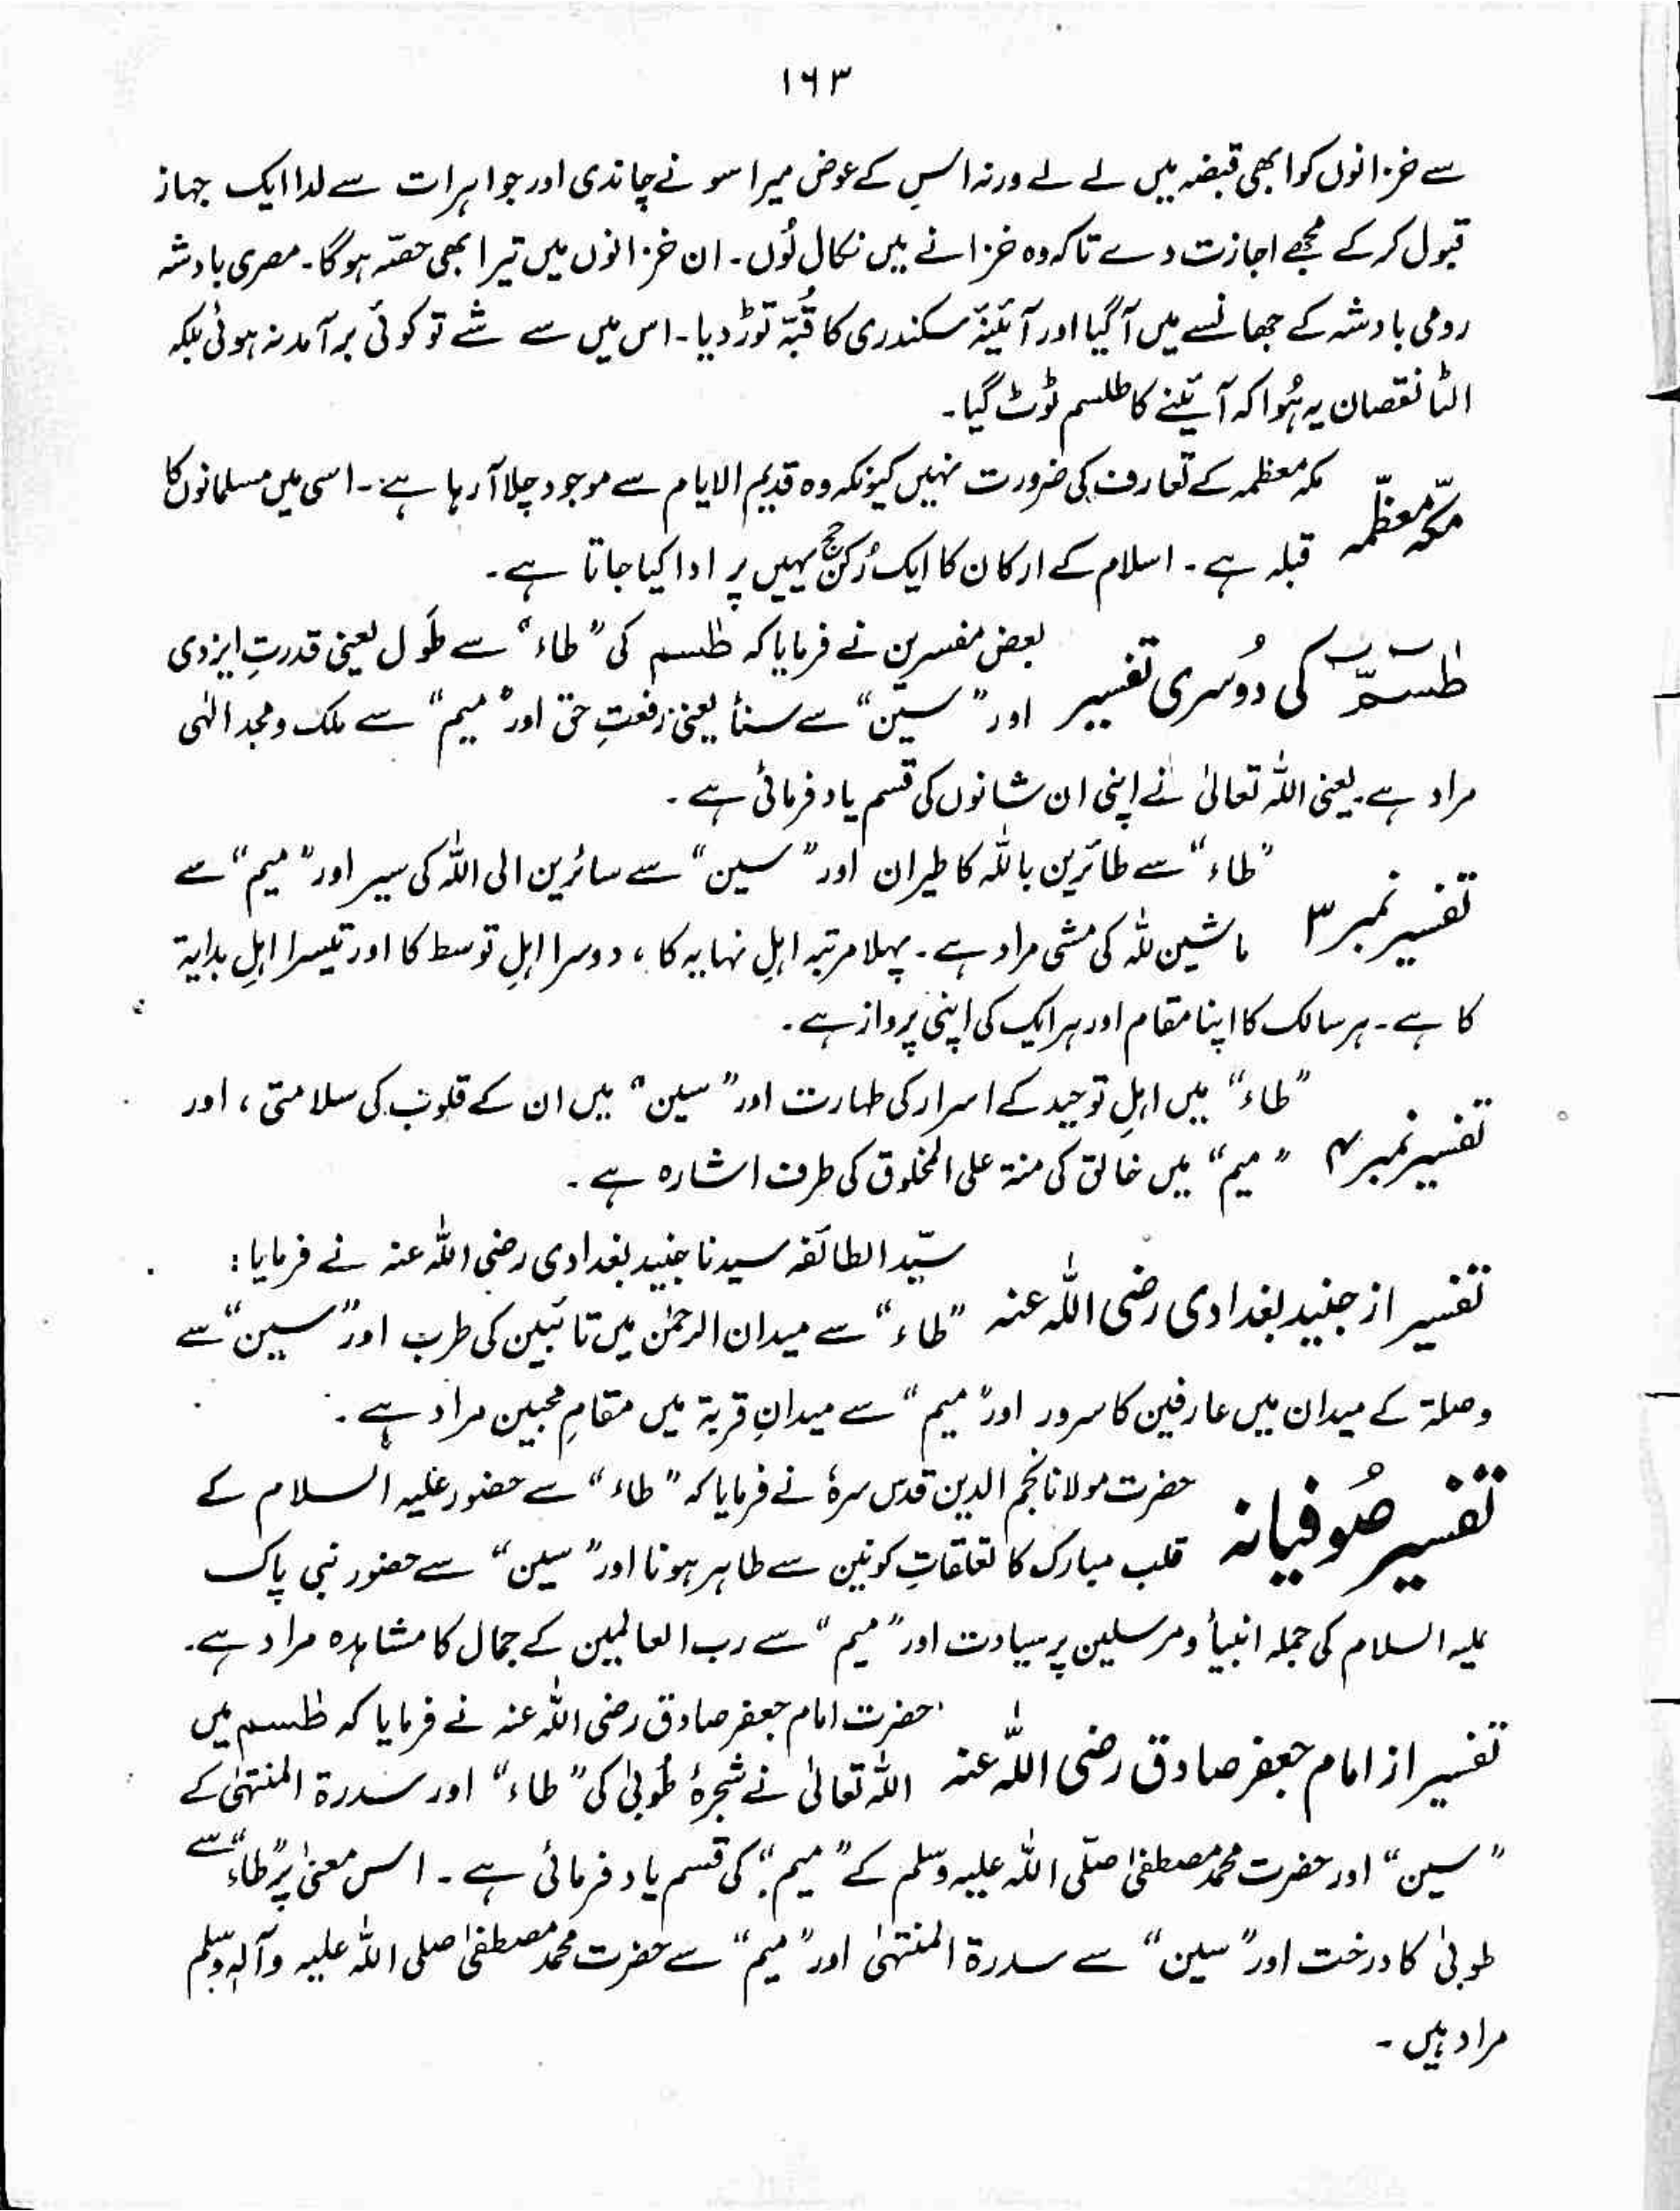 ۱۶۳
سے خزانوں کو ابھی قبضہ میں لے لے ورنہ اس کے عوض میرا سونے چاندی اور جواہرات سے لدا ایک جہاز
قبول کر کے مجھے اجازت دے تاکہ وہ خزانے میں نکال لُوں۔ ان خزانوں میں تیرا بھی حصّہ ہوگا۔ مصری بادشہ
رومی بادشہ کے جھانسے میں آگیا اور آئینۂ سکندری کا قُبّہ توڑ دیا۔ اس میں سے شے تو کوئی برآمد نہ ہوئی بلکہ
الٹا نقصان یہ ہُوا کہ آئینے کا طلسم ٹوٹ گیا۔
مکّہ معظّمہ
مکہ معظمہ کے تعارف کی ضرورت نہیں کیونکہ وہ قدیم الایام سے موجود چلا آرہا ہے۔ اسی میں مسلمانوں کا
قبلہ ہے۔ اسلام کے ارکان کا ایک رُکن حج یہیں پر ادا کیا جاتا ہے۔
طٰسٓمّٓ کی دُوسری تفسیر
بعض مفسرین نے فرمایا کہ طٰسم کی ”طاء“ سے طَول یعنی قدرتِ ایزدی
اور ”سین“ سے سنأ یعنی رفعتِ حق اور ”میم“ سے ملک و مجد الٰہی
مراد ہے۔ یعنی اللہ تعالیٰ نے اپنی ان شانوں کی قسم یاد فرمائی ہے۔
تفسیر نمبر ۳
”طاء“ سے طائرین باللہ کا طیران اور ”سین“ سے سائرین الی اللہ کی سیر اور ”میم“ سے
ماشین للہ کی مشی مراد ہے۔ پہلا مرتبہ اہلِ نہایہ کا، دوسرا اہلِ توسط کا اور تیسرا اہلِ بدایۃ
کا ہے۔ ہر سالک کا اپنا مقام اور ہر ایک کی اپنی پرواز ہے۔
تفسیر نمبر ۴
”طاء“ میں اہلِ توحید کے اسرار کی طہارت اور ”سین“ میں ان کے قلوب کی سلامتی، اور
”میم“ میں خالق کی منۃ علی المخلوق کی طرف اشارہ ہے۔
تفسیر از جنید بغدادی رضی اللہ عنہ
سیّد الطائفہ سیدنا جنید بغدادی رضی اللہ عنہ نے فرمایا:
”طاء“ سے میدان الرحمٰن میں تائبین کی طرب اور ”سین“ سے
وصلۃ کے میدان میں عارفین کا سرور اور ”میم“ سے میدانِ قربۃ میں مقامِ محبین مراد ہے۔
تفسیر صُوفیانہ
حضرت مولانا نجم الدین قدس سرہٗ نے فرمایا کہ ”طاء“ سے حضور علیہ السلام کے
قلب مبارک کا تعلقاتِ کونین سے طاہر ہونا اور ”سین“ سے حضور نبی پاک
علیہ السلام کی جملہ انبیأ و مرسلین پر سیادت اور ”میم“ سے رب العالمین کے جمال کا مشاہدہ مراد ہے۔
تفسیر از امام جعفر صادق رضی اللہ عنہ
حضرت امام جعفر صادق رضی اللہ عنہ نے فرمایا کہ طٰسم میں
اللہ تعالیٰ نے شجرۂ طُوبیٰ کی ”طاء“ اور سدرۃ المنتہٰی کے
”سین“ اور حضرت محمد مصطفیٰ صلّی اللہ علیہ وسلم کے ”میم“ کی قسم یاد فرمائی ہے۔ اس معنیٰ پر ”طاء“ سے
طوبیٰ کا درخت اور ”سین“ سے سدرۃ المنتہٰی اور ”میم“ سے حضرت محمد مصطفیٰ صلی اللہ علیہ وآلہٖ وسلم
مراد ہیں۔